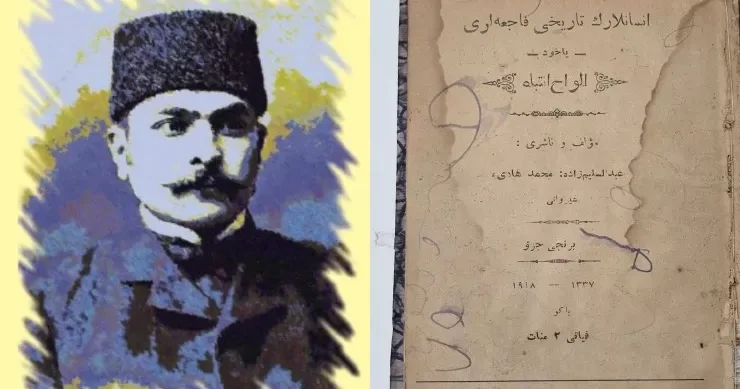 انسانلارك تاريخى فاجعه‌لرى
ياخود
الواح انتباه
مؤلف و ناشرى :
عبدالسليم‌زاده: محمد هادى
شيروانى
برنجى جزؤ
١٣٣٧ — ١٩١٨
باكو
فيأتى ٢ منات